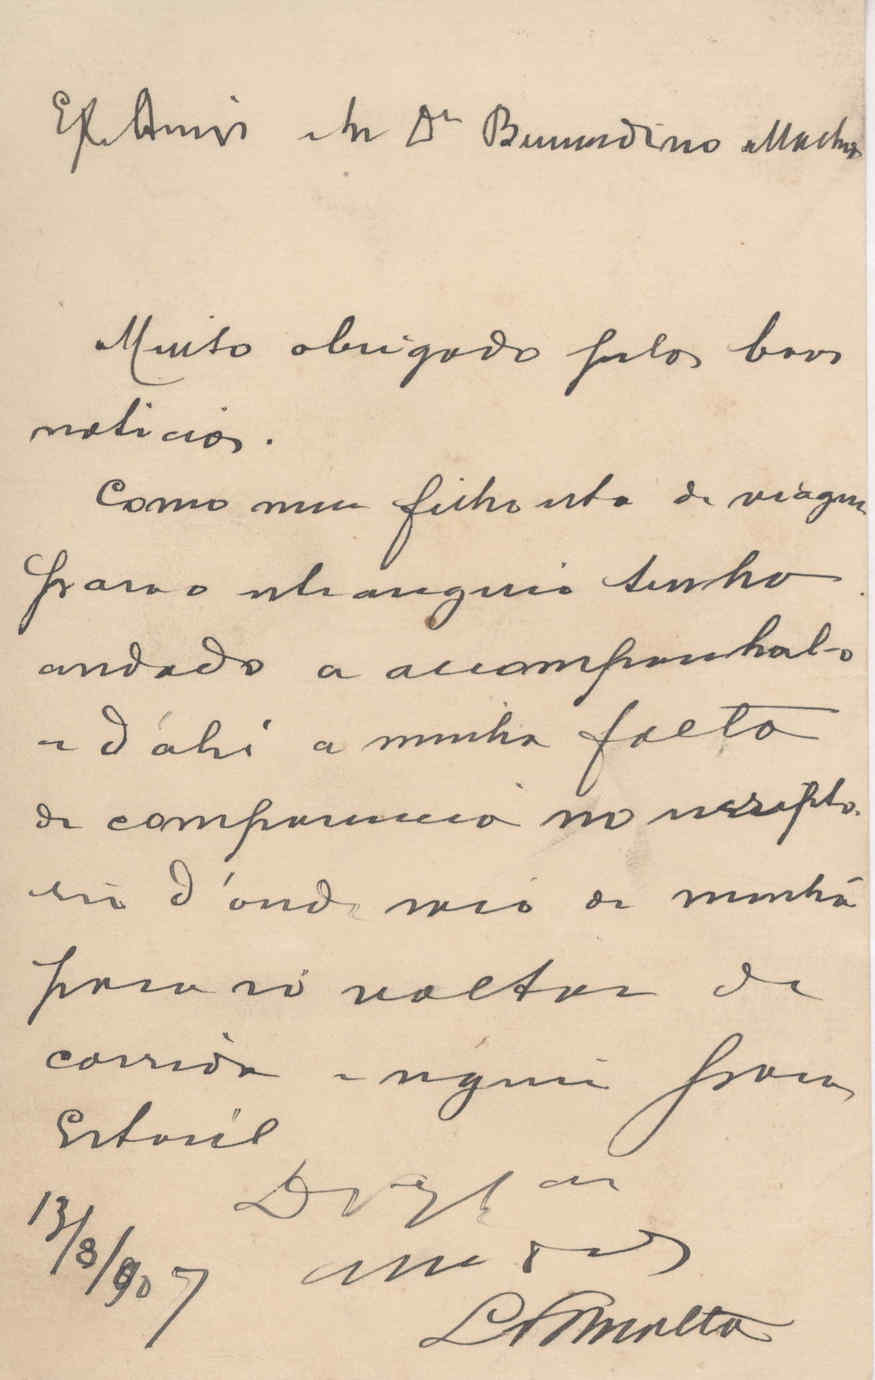 Exmo Amigo e Sr Dr Bernardino Machado
Muito obrigado pelas boas
noticias.
Como meu filho esta de viagem
para o estrangeiro tenho
andado a acompanhal-o
e d'ahi a minha falta
de comparencia no escripto-
rio d'onde saio de manhã
para só voltar de
corrida e seguir para
Estoril
De V. Exa
13/8/907